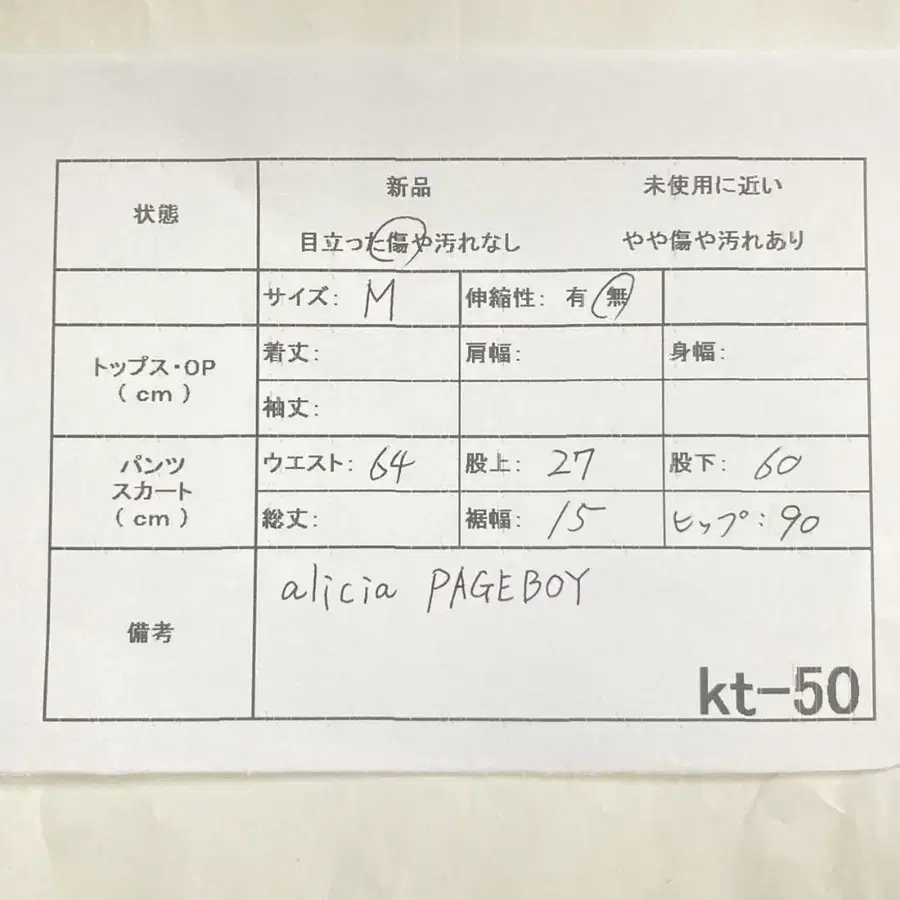 状態 新品 未使用に近い
目立った傷や汚れなし やや傷や汚れあり
サイズ: M 伸縮性: 有 無
トップス・OP
(cm)
着丈: 肩幅: 身幅:
袖丈:
パンツ
スカート
(cm)
ウエスト: 64 股上: 27 股下: 60
総丈: 裾幅: 15 ヒップ: 90
備考
alicia PAGEBOY
kt-50